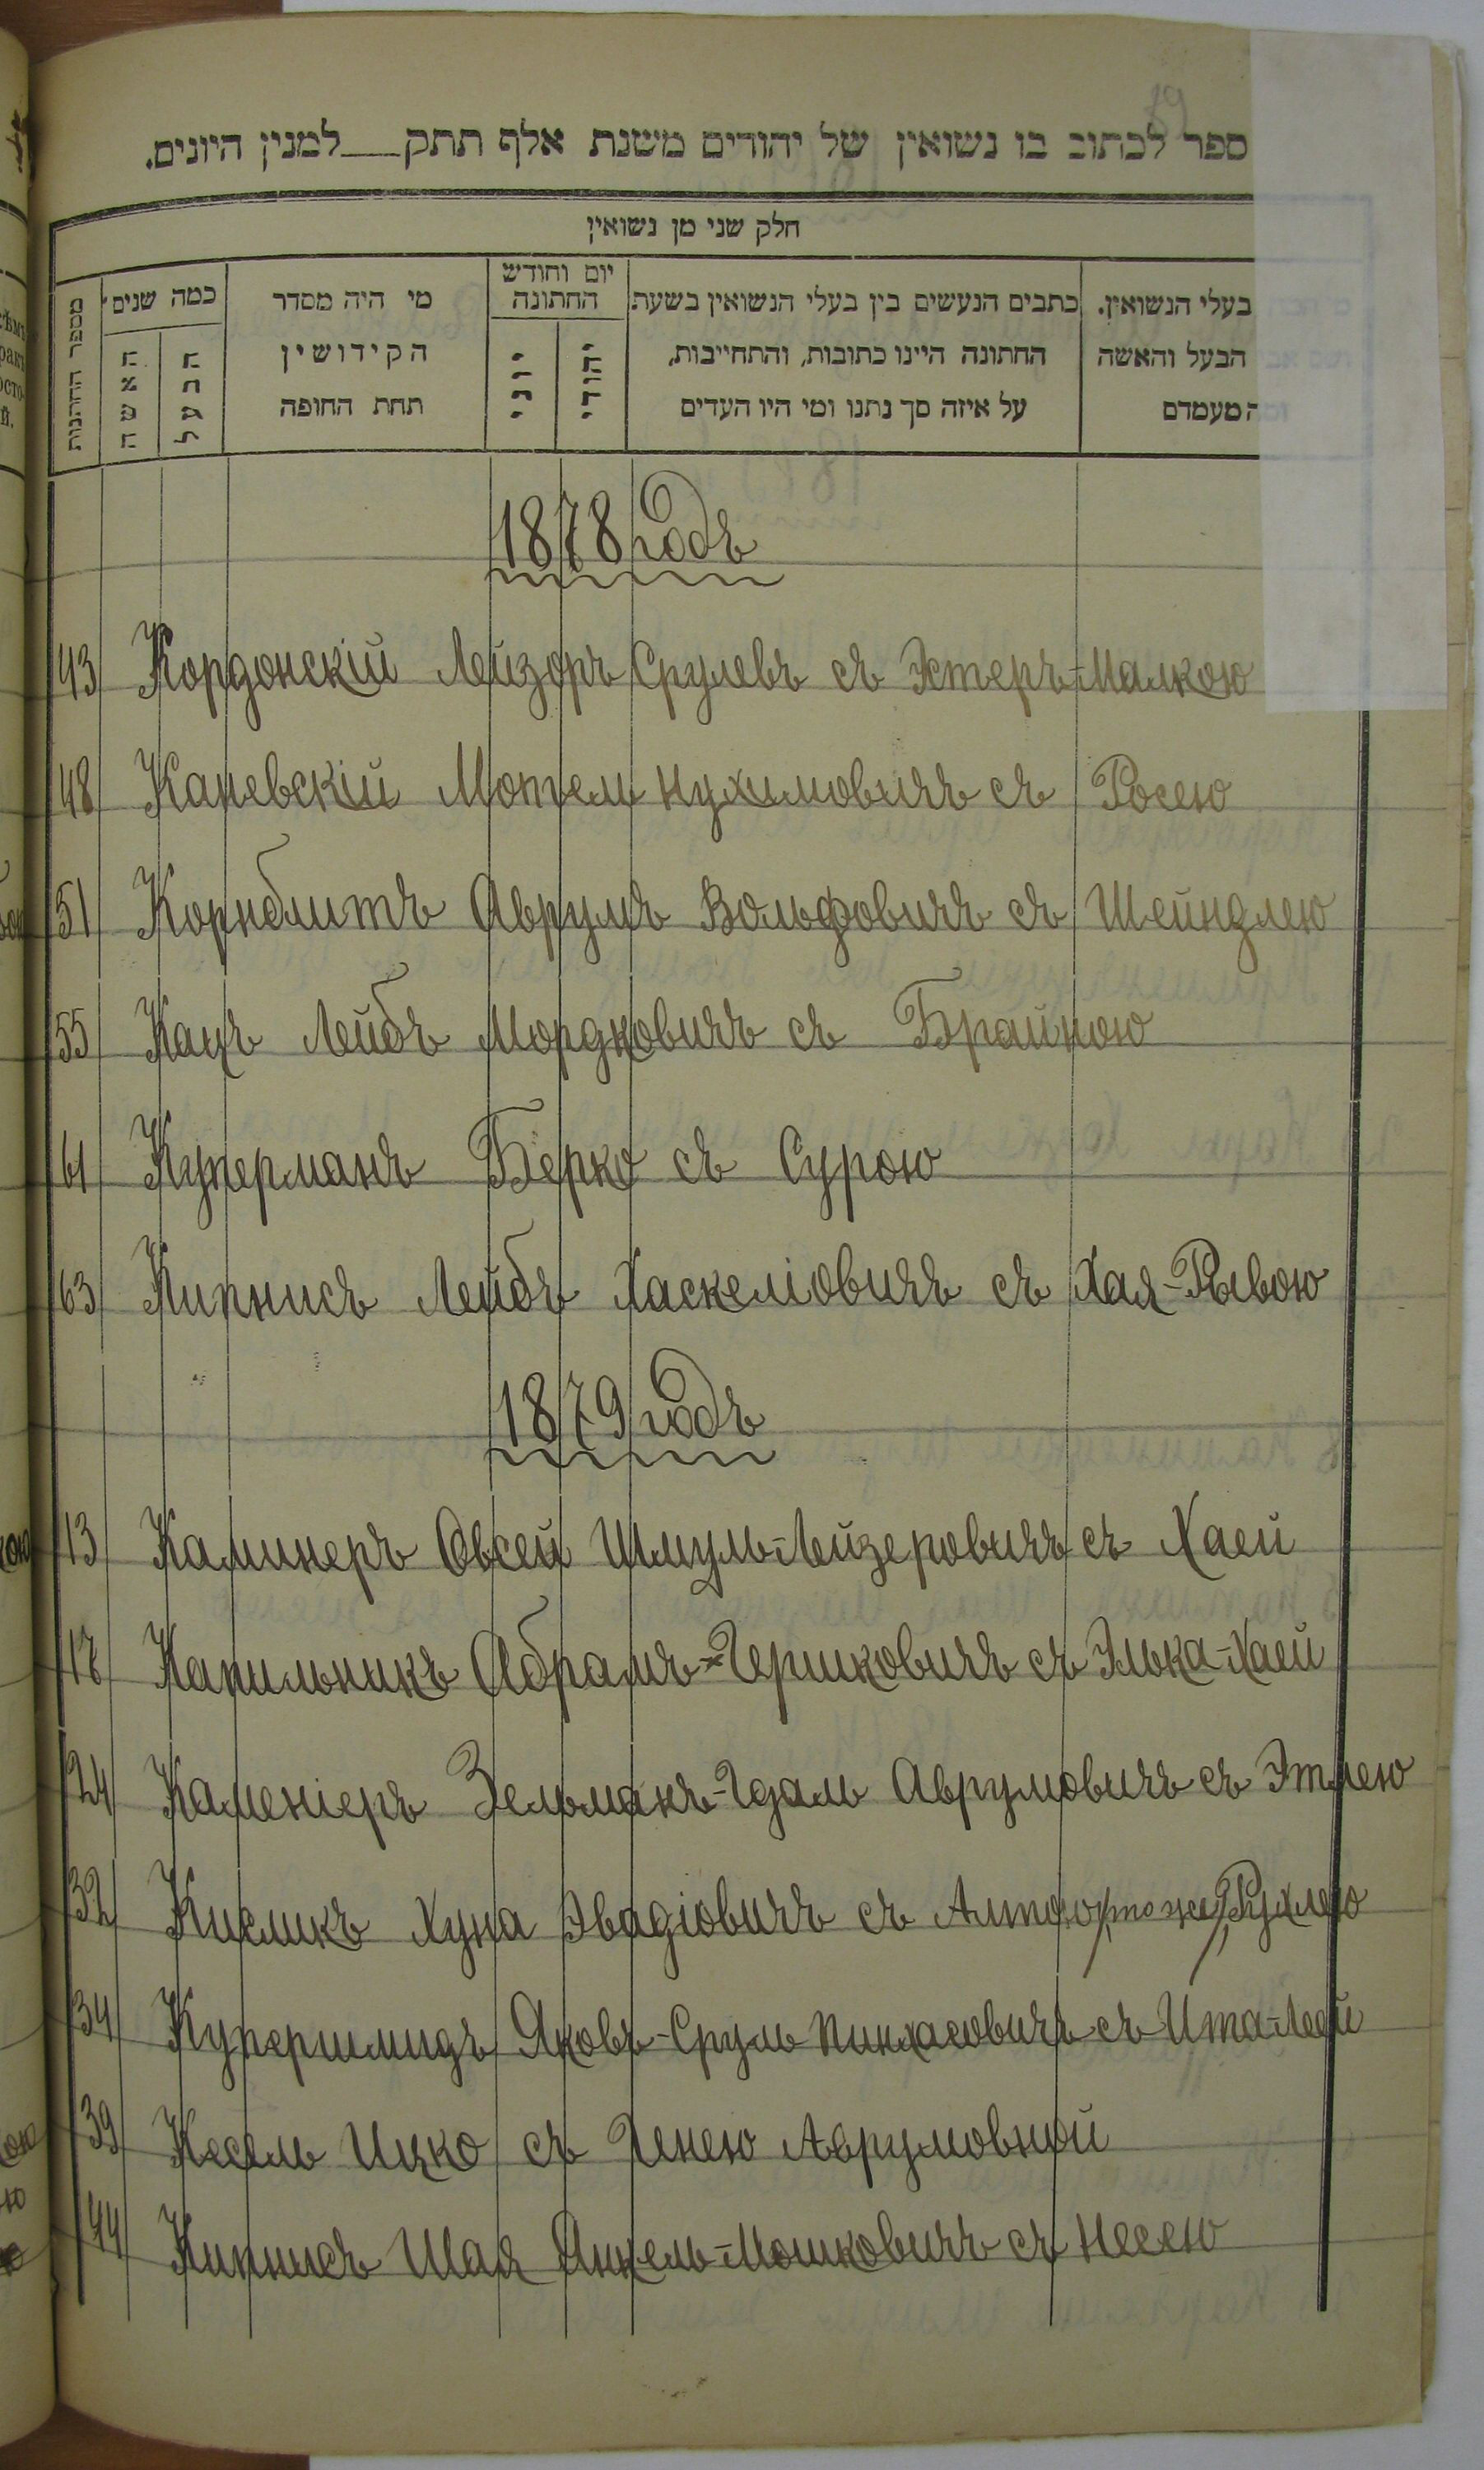 ספר לכתוב בו נשואין של יהודים משנת אלף תתק___ למנין היונים.
חלק שני מן נשואין
בעלי הנשואין.
הבעל והאשה
מעמדם
כתבים הנעשים בין בעלי הנשואין בשעת
החתונה היינו כתובות, והתחייבות,
על איזה סך נתנו ומי היו העדים
יום וחודש
החתונה
יהודי
יוני
מי היה מסדר
הקידושין
תחת החופה
כמה שנים
הבעל
האשה
מספר החתונות
1878 годъ
43 Кордонскій Лейзоръ Срулевъ съ Эстеръ-Малкою
48 Каневскій Мотель Нухимовичъ съ Росею
51 Корнблитъ Аврумъ Вольфовичъ съ Шейндлею
55 Кацъ Лейбъ Мордковичъ съ Брайною
61 Куперманъ Берко съ Сурою
63 Кипнисъ Лейбъ Хаскеліовичъ съ Хая-Рывою
1879 годъ
13 Каминеръ Овсей Шмуль-Лейзеровичъ съ Хаей
17 Капильникъ Абрамъ-Гершковичъ съ Элька-Хаей
24 Каменіеръ Зельманъ-Гдаль Аврумовичъ съ Этлею
32 Кисликъ Хуна Эвадіовичъ съ Алтою /тоже/ Рухлею
34 Купершмидъ Яковъ-Сруль Пинхасовичъ съ Ита-Леей
39 Кесель Ицко съ Генею Аврумовной
44 Кипнисъ Шая Янкель-Мошковичъ съ Несею